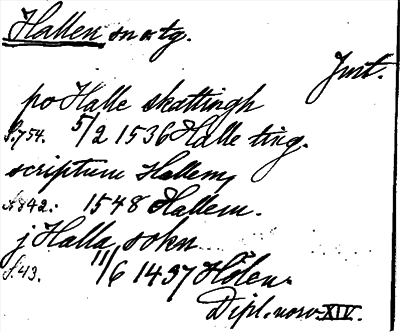 Hallen sn o tg.
Jmt.
po Halle skattingh
S. 754. 5/2 1536 Halle ting.
scriptum Hallem,
S. 842. 1548 Hallem.
j Halla sokn
S. 43. 11/6 1437 Hölen.
Dipl. norv. XIV.